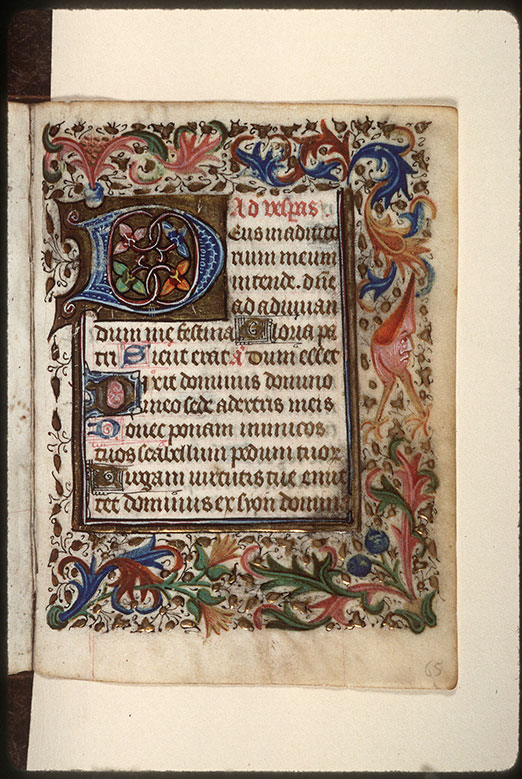 Ad vespas
Deus in adiuto
rium meum
intende. dn̄e
ad adiuuan
dum me festina Gloria pa
tri Sicut erat a Dum esset
Dixit dominus domino
meo sede a dextris meis
Donec ponam inimicos
tuos scabellum pedum tuor
Uirgam uirtutis tue emit
tet dominus ex syon domi
65